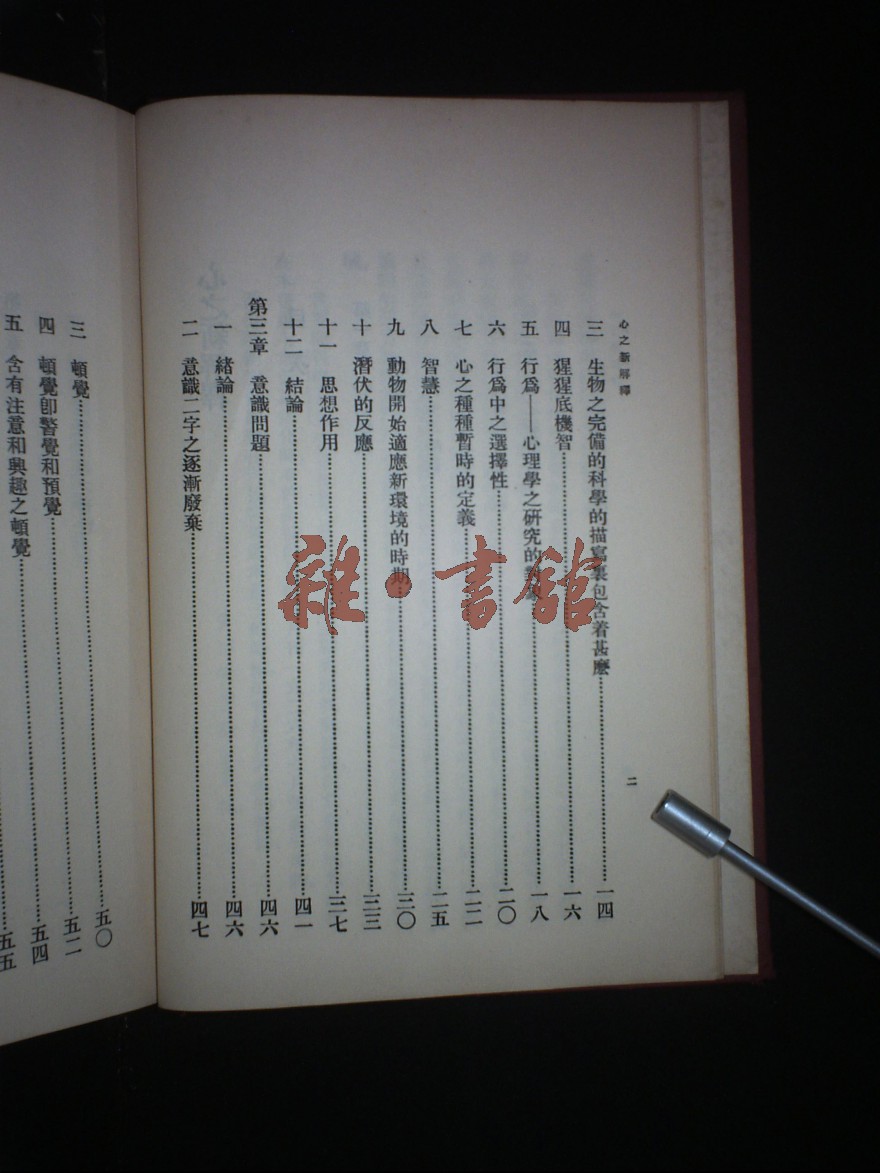 心之新解釋
二
三　生物之完備的科學的描寫裏包含着甚麼……一四
四　猩猩底機智……一六
五　行爲——心理學之研究的對象……一八
六　行爲中之選擇性……二〇
七　心之種種暫時的定義……二二
八　智慧……二五
九　動物開始適應新環境的時期……三〇
十　潛伏的反應……三三
十一　思想作用……三七
十二　結論……四一
第三章　意識問題……四六
一　緒論……四六
二　意識二字之逐漸廢棄……四七
三　頓覺……五〇
四　頓覺卽警覺和預覺……五二
五　含有注意和興趣之頓覺……五四
五五
雜·書館